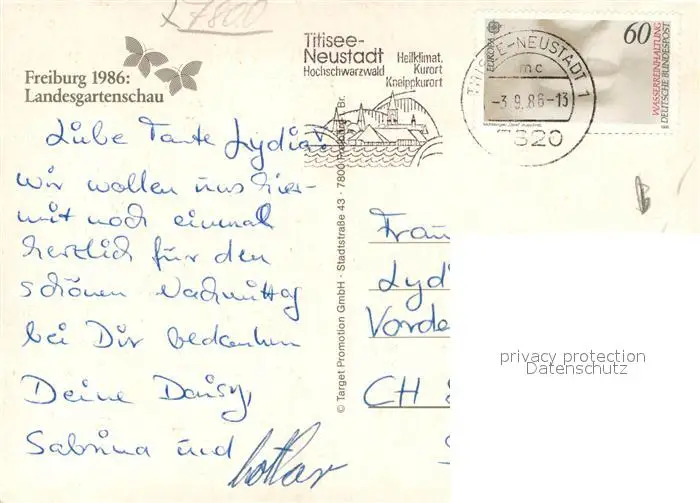 Z7800
Freiburg 1986:
Landesgartenschau
Titisee-
Neustadt
Hochschwarzwald
Heilklimat.
Kurort
Kneippkurort
TITISEE-NEUSTADT 1
mc
-3.9.86-13
7820
EUROPA
60
WASSERREINHALTUNG
DEUTSCHE BUNDESPOST
1986
Liebe Tante Lydia!
Wir wollen uns hier-
mit noch einmal
herzlich für den
schönen Nachmittag
bei Dir bedanken
Deine Daisy,
Sabrina und Lothar
© Target Promotion GmbH · Stadtstraße 43 · 7800 Freiburg Br.
Frau
Lyd
Vorde
CH
privacy protection
Datenschutz